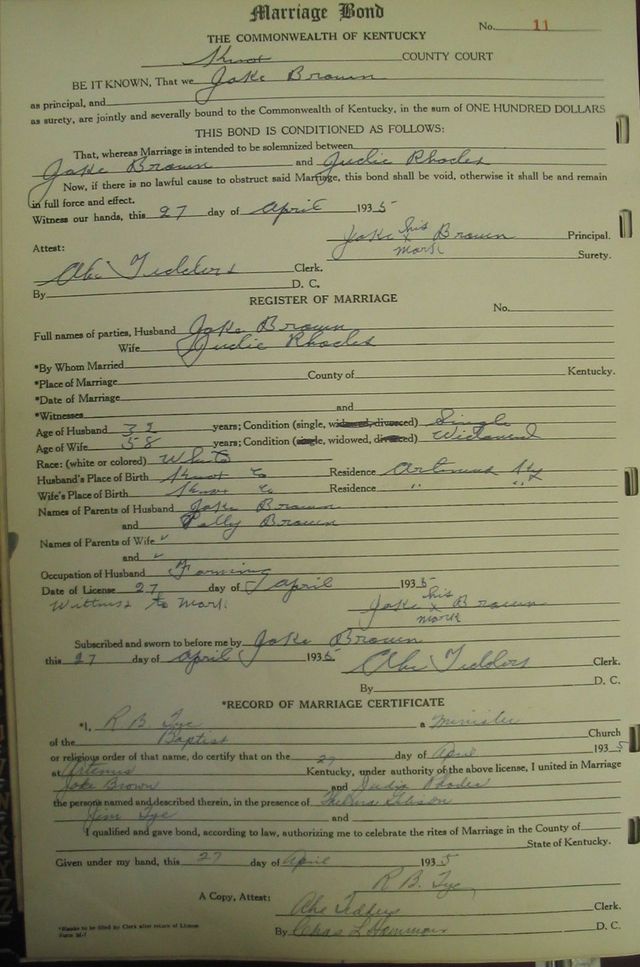 Marriage Bond
No. 11
THE COMMONWEALTH OF KENTUCKY
Knox COUNTY COURT
BE IT KNOWN, That we Jake Brown
as principal, and
as surety, are jointly and severally bound to the Commonwealth of Kentucky, in the sum of ONE HUNDRED DOLLARS
THIS BOND IS CONDITIONED AS FOLLOWS:
That, whereas Marriage is intended to be solemnized between
Jake Brown and Judie Rhodes
Now, if there is no lawful cause to obstruct said Marriage, this bond shall be void, otherwise it shall be and remain
in full force and effect.
Witness our hands, this 27 day of April 1935
Jake his x mark Brown Principal.
Attest: Surety.
Abe Tedders Clerk.
By D. C.
REGISTER OF MARRIAGE
No.
Full names of parties, Husband Jake Brown
Wife Judie Rhodes
*By Whom Married
*Place of Marriage County of Kentucky.
*Date of Marriage
*Witnesses and
Age of Husband 32 years; Condition (single, widowed, divorced) Single
Age of Wife 58 years; Condition (single, widowed, divorced) Widowed
Race: (white or colored) White
Husband's Place of Birth Knox Co Residence Artemus Ky
Wife's Place of Birth Knox Co Residence " "
Names of Parents of Husband Jake Brown
and Polly Brown
Names of Parents of Wife ✓
and ✓
Occupation of Husband Farming
Date of License 27 day of April 1935
Witness to Mark Jake his x mark Brown
Subscribed and sworn to before me by Jake Brown
this 27 day of April 1935 Abe Tedders Clerk.
By D. C.
*RECORD OF MARRIAGE CERTIFICATE
*I, R. B. Tye a Minister
of the Baptist Church
or religious order of that name, do certify that on the 27 day of April 1935
at Artemus Kentucky, under authority of the above license, I united in Marriage
Jake Brown and Judie Rhodes
the persons named and described therein, in the presence of Thelma Gibson
Jim Tye and
I qualified and gave bond, according to law, authorizing me to celebrate the rites of Marriage in the County of
State of Kentucky.
Given under my hand, this 27 day of April 1935
R. B. Tye
A Copy, Attest: Abe Tedders Clerk.
By Chas L Hammons D. C.
*Blanks to be filled by Clerk after return of License
Form M-7